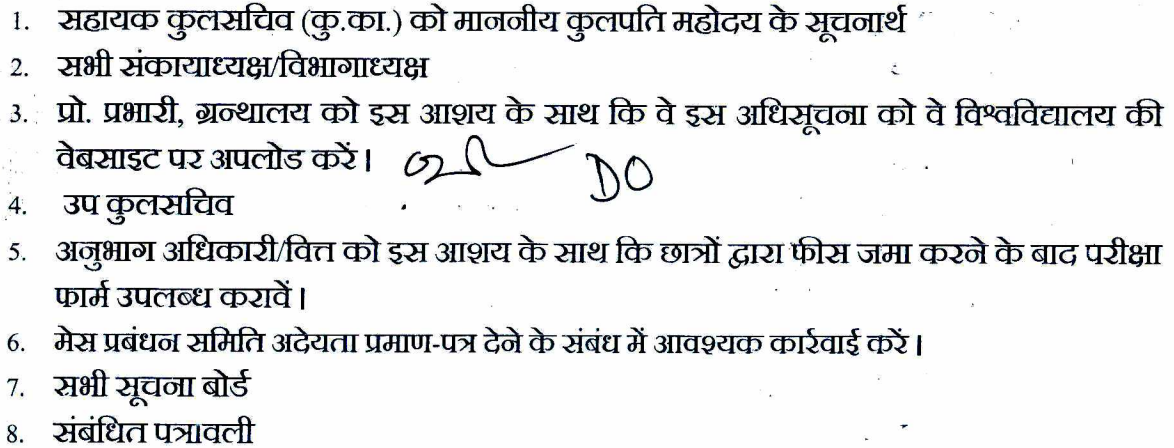 1. सहायक कुलसचिव (कु.का.) को माननीय कुलपति महोदय के सूचनार्थ
2. सभी संकायाध्यक्ष/विभागाध्यक्ष
3. प्रो. प्रभारी, ग्रन्थालय को इस आशय के साथ कि वे इस अधिसूचना को वे विश्वविद्यालय की
वेबसाइट पर अपलोड करें।
DO
4. उप कुलसचिव
5. अनुभाग अधिकारी/वित्त को इस आशय के साथ कि छात्रों द्वारा फीस जमा करने के बाद परीक्षा
फार्म उपलब्ध करावें।
6. मेस प्रबंधन समिति अदेयता प्रमाण-पत्र देने के संबंध में आवश्यक कार्रवाई करें।
7. सभी सूचना बोर्ड
8. संबंधित पत्रावली